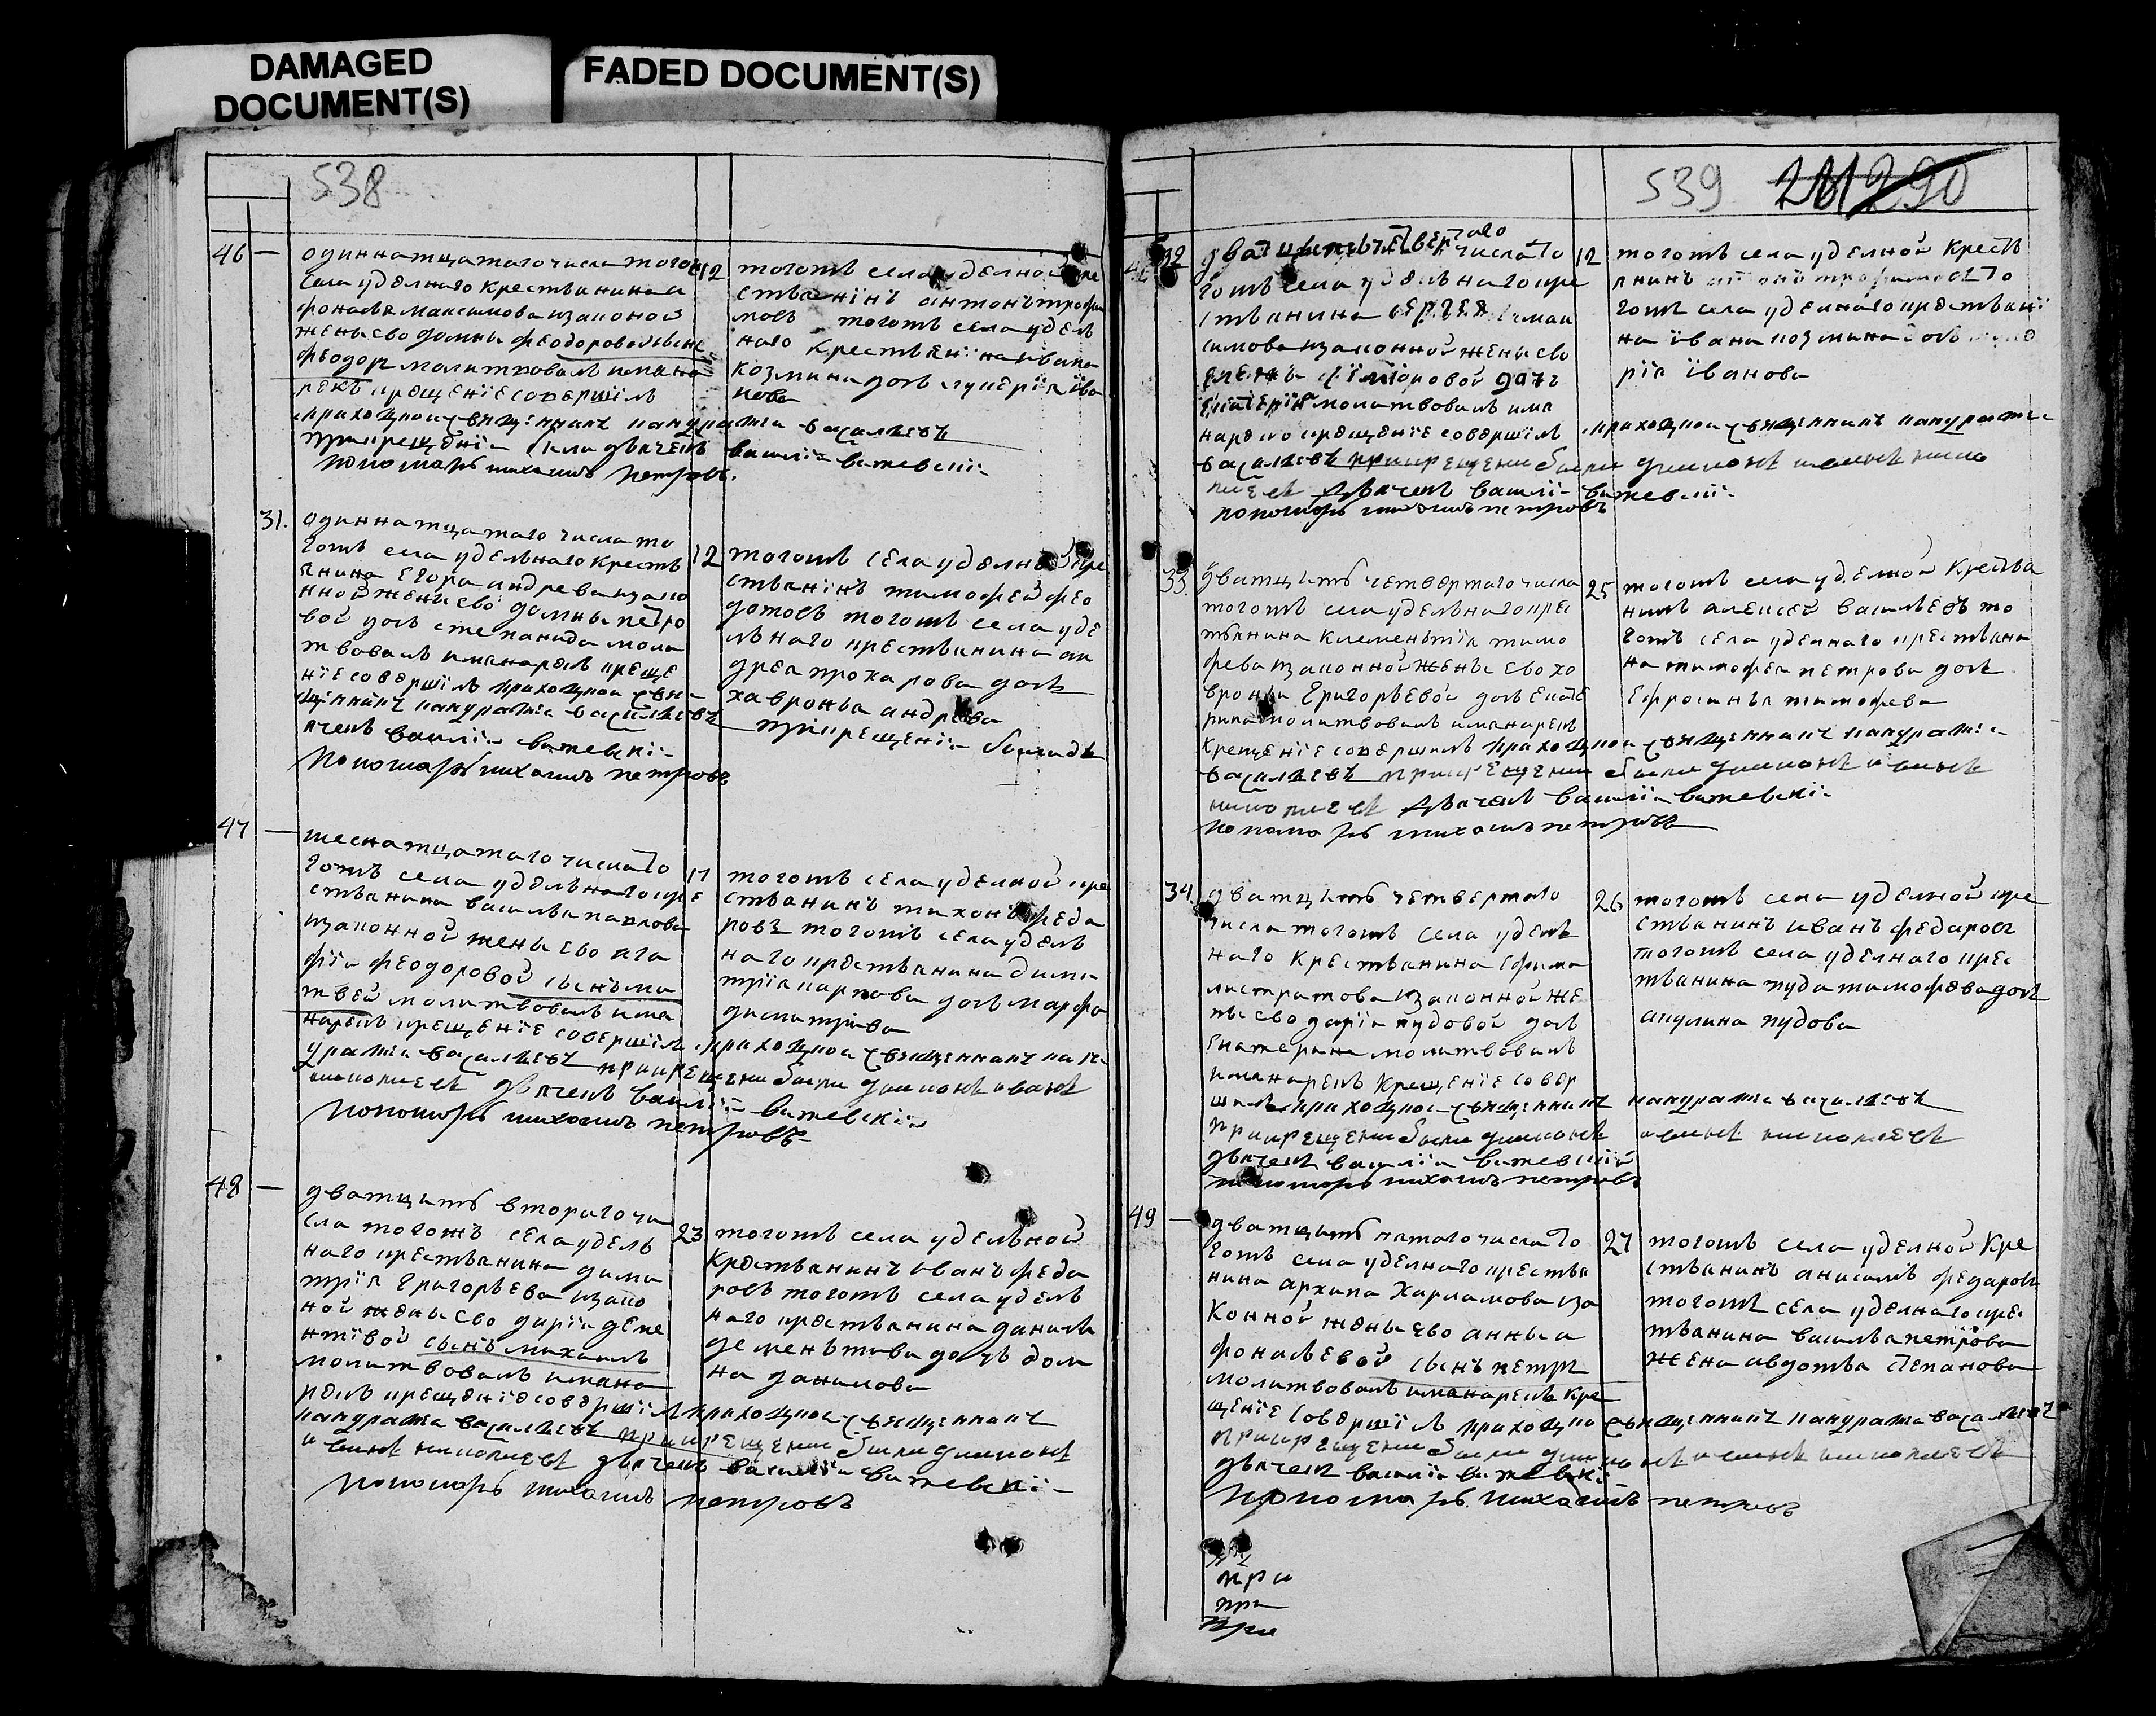 DAMAGED
DOCUMENT(S)
FADED DOCUMENT(S)
538
46 — одиннатцатого числа тогож
села уделнаго крестьянина а
фонасья максимова изаконой
жены ево домны феодоровой сынъ
феодоръ молитвовалъ имяна
рекъ крещенїе совершилъ
приходской священникъ панкратїй васильевъ
при крещенїи были дьячекъ василїй витевскїй
пономарь михаилъ петровъ.
12 тогожъ села уделной кре
стьянинъ антонъ трофи
мовъ тогожъ села удель
наго крестьянїна ивана
козмина дочь лукерїя їва
нова
31. одиннатцатого числа то
гожъ села удельнаго кресть
янина егора андреева изако
нной жены ево домны петро
вой дочь степанида моли
твовалъ имянарекъ креще
нїе совершилъ приходской свя
щенникъ панкратїй васильевъ
ячекъ василїй витевскїй
пономарь михаилъ петровъ
12 тогожъ села уделной кре
стьянїнъ тимофей фео
дотовъ тогожъ села уде
льнаго крестьянина ан
дрея прохарова дочь
хавронья андреева
при крещенїи были дь
47 — шеснатцатаго числа то
гожъ села удельнаго кре
стьянина василья павлова
изаконной жены ево ага
фїи феодоровой сынъ ма
твей молитвовалъ имя
нарекъ крещенїе совершилъ приходской священникъ пан
кратїй васильевъ при крещени были
дьячекъ василїй витевскїй
пономарь михаилъ петровъ
17 тогожъ села уделной кре
стьянинъ тихонъ феда
ровъ тогожъ села удель
наго крестьянина дими
трїя карпова дочь марфа
димитрїева
48 — дватцать втораго чи
сла тогожъ села удель
наго крестьянина дими
трїя григорьева изако
ной жены ево дарїи деме
нтївой сынъ михаилъ
молитвовалъ имяна
рекъ крещенїе совершилъ приходской священникъ
панкратїй васильевъ при крещени были
дьячекъ василїй витевскїй
пономарь михаилъ петровъ
23 тогожъ села удельной
крестьянинъ иванъ феда
ровъ тогожъ села удель
наго крестьянина данилы
дементьива дочь дом
на данилова
539 290
32 дватцать четвертаго числа то
гожъ села удельнаго кре
стьянина сергея макси
мова изаконной жены ево
дочь
екатерина молитвовалъ имя
нарекъ крещенїе совершилъ приходской священникъ панкратїй
васильевъ при крещени были
дьячекъ василїй витевскїй
пономарь михаилъ петровъ
12 тогожъ села уделной кресть
янинъ антонъ трофимовъ то
гожъ села уделнаго крестьянї
на ївана козмина дочь луке
рїя їванова
33. дватцать четвертаго числа
тогожъ села удельнаго крес
тьянина клементїя тимо
феева изаконной жены ево хо
вроньи григорьевой дочь екате
рина молитвовалъ имянарекъ
крещенїе совершилъ приходской священникъ панкратїй
васильевъ при крещени были
дьячекъ василїй витевскїй
пономарь михаилъ петровъ
25 тогожъ села уделной крестья
нинъ алексей васильевъ то
гожъ села уделнаго крестьяни
на тимофея петрова дочь
ефросинья тимофева
34. дватцать четвертаго
числа тогожъ села удель
наго крестьянина ефима
листратова изаконной же
ны ево дарїи пудовой дочь
екатерина молитвовалъ
имянарекъ крещенїе совер
шилъ приходской священникъ панкратїй васильевъ
при крещени были
дьячекъ василїй витевскїй
пономарь михаилъ петровъ
26 тогожъ села уделной кре
стьянинъ иванъ федаровъ
тогожъ села уделнаго крес
тьянина пуда тимофева дочь
акулина пудова
49 — дватцать пятого числа то
гожъ села уделнаго крестья
нина архипа харламова иза
конной жены ево анны а
фонасьевой сынъ петръ
молитвовалъ имянарекъ кре
щенїе совершилъ приходской священникъ панкратїй васильевъ
при крещени были
дьячекъ василїй витевскїй
пономарь михаилъ петровъ
27 тогожъ села уделной кре
стьянинъ анисимъ федаровъ
тогожъ села уделнаго кре
стьянина василья петрова
жена авдотья степанова
при
при
при